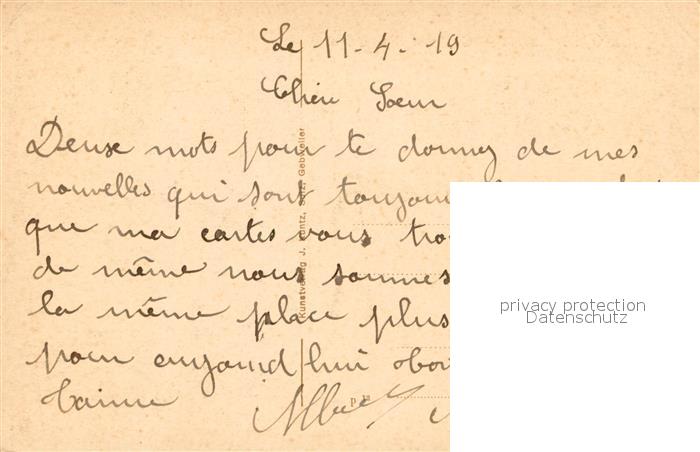 Le 11-4-19
Chère Soeur
Deuxe mots pour te donney de mes
nouvelles qui sont toujour
que ma cartes vous
de même nous sommes
la même place plus
pour aujourd hui
t'aime
Kunstverlag J. Kuntz, Sulz, Gebweiler
privacy protection
Datenschutz